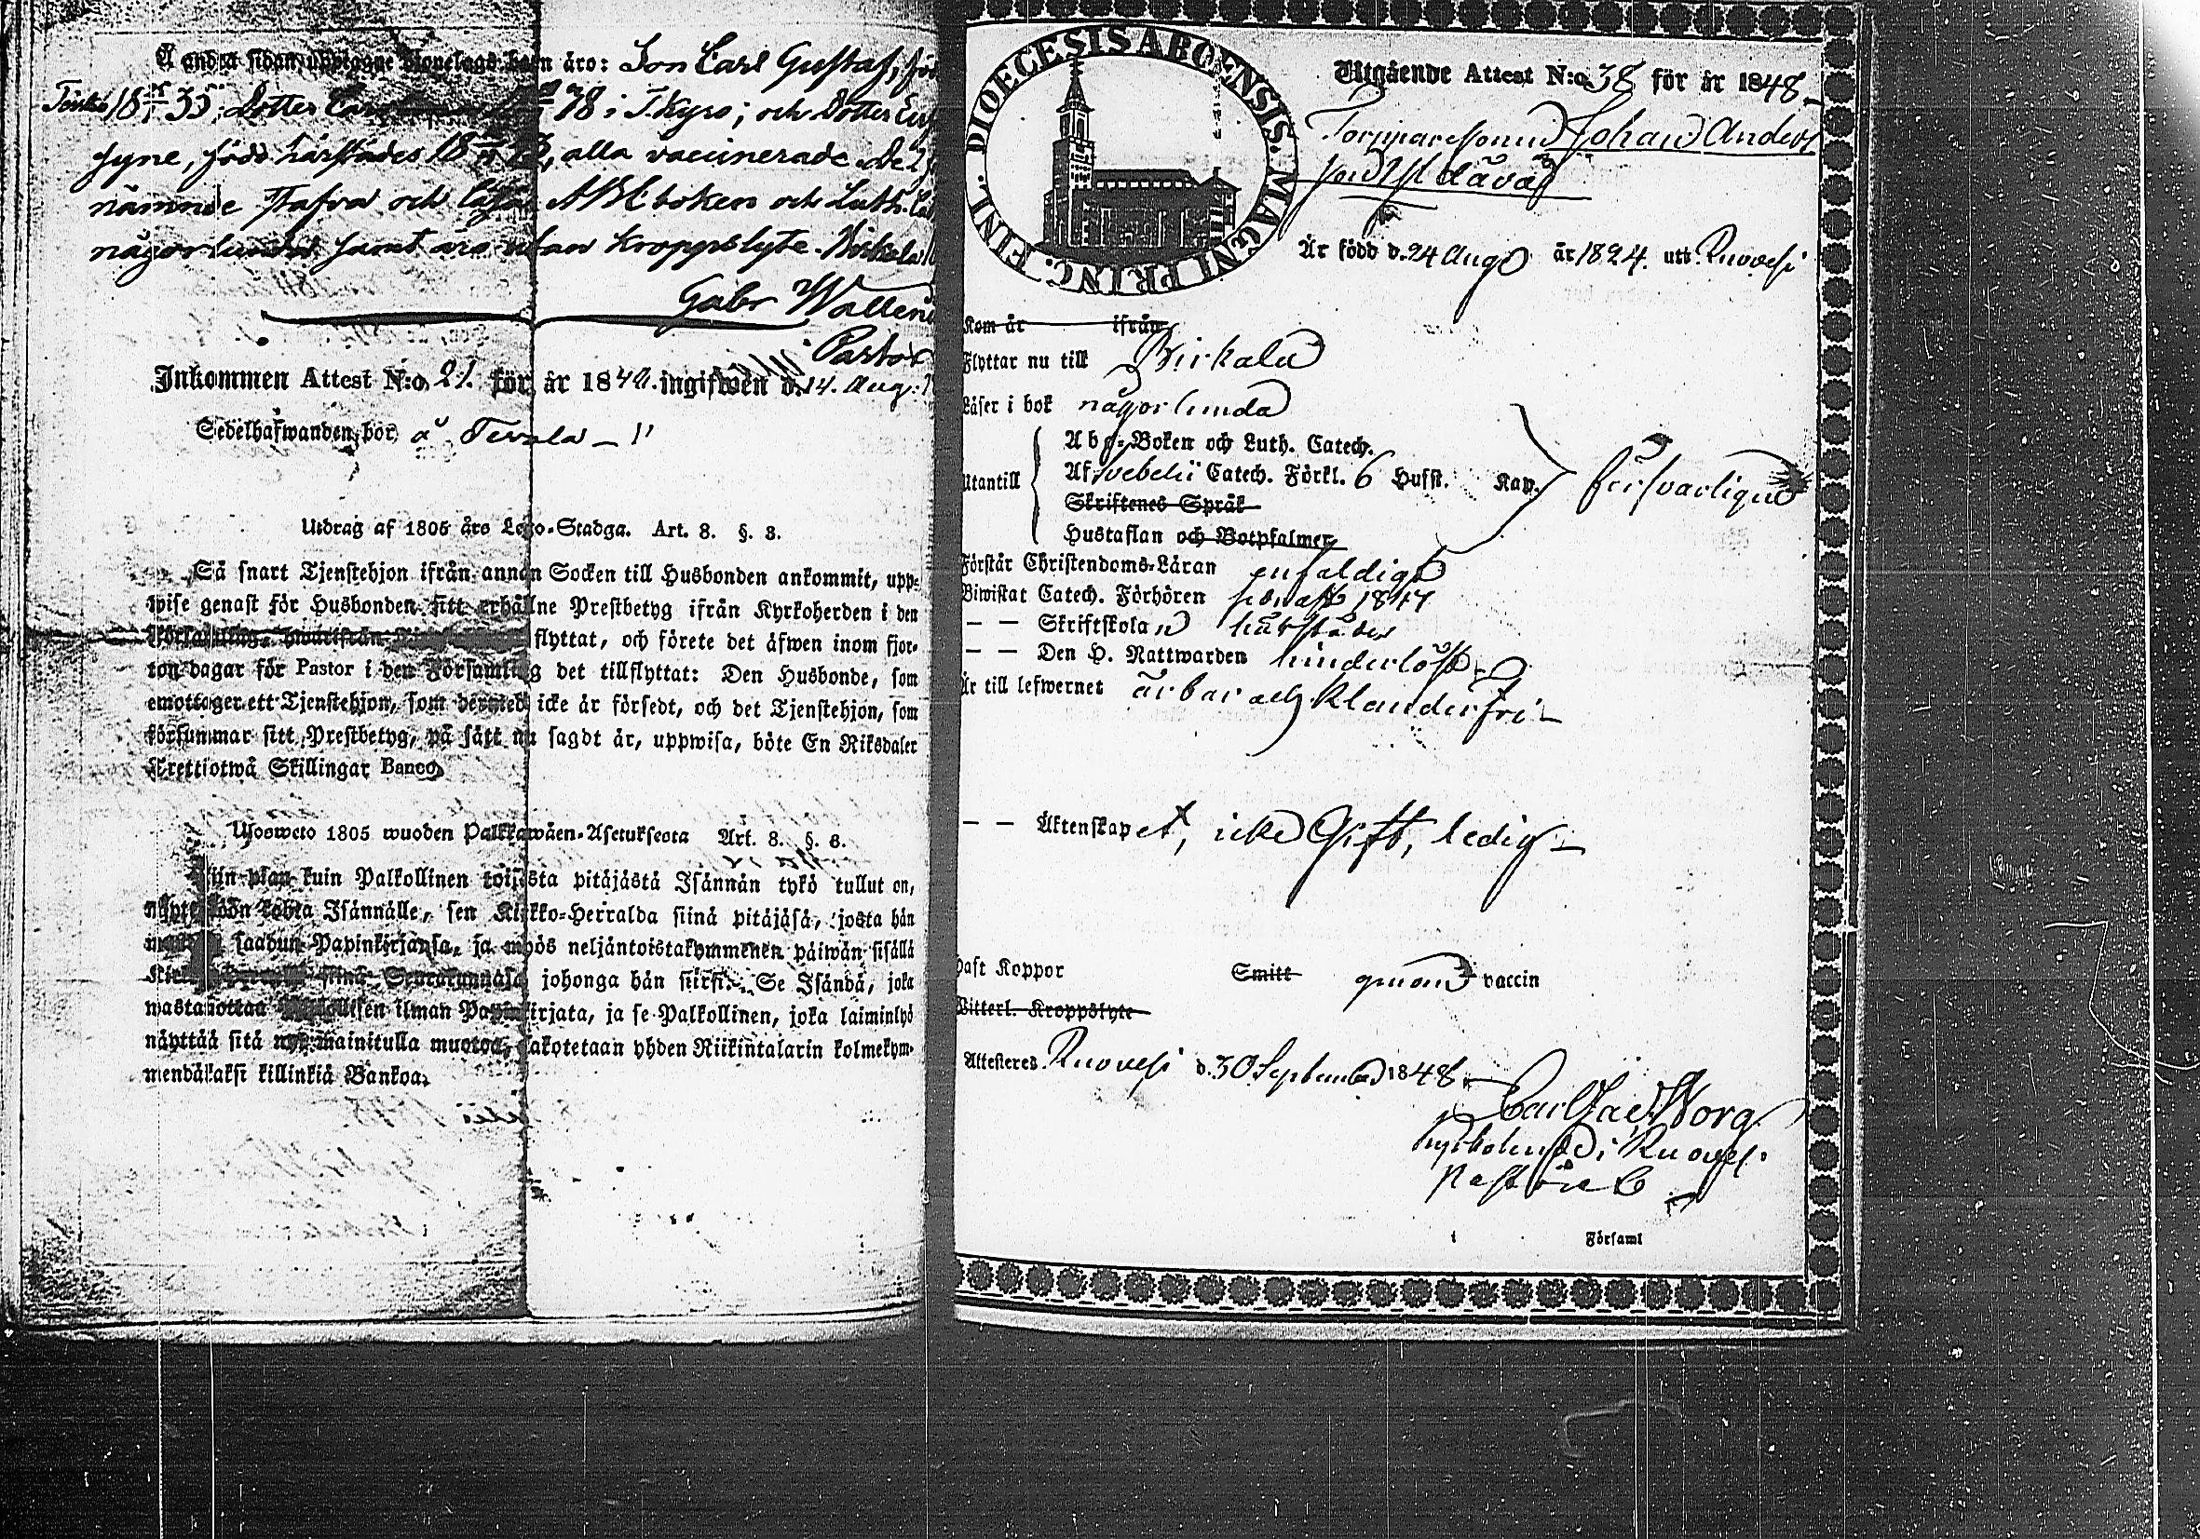 Å andra sidan upptagne Bonelags barn äro: Son Carl Gustaf, föd
18 35; Dotter i T.kyro; och Dotter
syne, född härstädes 18 alla vaccinerade. De
nämnde stafva och läsa ABC boken och Luth.
någorlunda samt äro utan Kroppslyte. Birkala
Gabr Walleni
Pastor
Inkommen Attest N:o 21. för år 1848. ingifwen d. 14. Aug:
Sedelhafwanden bor å
Utdrag af 1805 års Lego-Stadga. Art. 8. §. 3.
Så snart Tjenstehjon ifrån annan Socken till Husbonden ankommit, upp-
wise genast för Husbonden sitt erhållne Prestbetyg ifrån Kyrkoherden i den
Församling, hwarifrån flyttat, och förete det äfwen inom fjor-
ton dagar för Pastor i den Församling det tillflyttat: Den Husbonde, som
emottager ett Tjenstehjon, som dermed icke är försedt, och det Tjenstehjon, som
försummar sitt Prestbetyg, på sätt nu sagdt är, uppwisa, böte En Riksdaler
Trettiotwå Skillingar Banco.
Ulosweto 1805 wuoden Palkkawäen-Asetuksesta Art. 8. §. 8.
Niin pian kuin Palkollinen toisesta pitäjästä Isännän tykö tullut on,
näyttäköön kohta Isännälle, sen Kirkko-Herralda siinä pitäjäsä, josta hän
saadun Papinkirjansa, ja myös neljäntoistakymmenen päiwän sisällä
siinä Seurakunnasa johonga hän siirsi. Se Isändä, joka
wastanottaa Palkollisen ilman Papinkirjata, ja se Palkollinen, joka laiminlyö
näyttää sitä nyt mainitulla muotoa, sakotetaan yhden Riikintalarin kolmekym-
mendäkaksi killinkiä Bankoa.
DIOECESIS ABOENSIS. MAGNI PRINC. FINL.
Utgående Attest N:o 38 för år 1848
Torpparesonen Johan Anders
son
Är född d. 24 Aug år 1824. uti Ruovesi
Kom år ifrån
Flyttar nu till Birkala
Läser i bok någorlunda
Abc-Boken och Luth. Catech.
Utantill Af Svebelii Catech. Förkl. 6 Hufst. Kap. försvarligen
Skriftenes Språk
Hustaflan och Botpsalmer
Förstår Christendoms-Läran enfaldigt
Biwistat Catech. Förhören senast 1847
— — Skriftskolan härstädes
— — Den H. Nattwarden hinderlöst
Är till lefwernet ärbar och klanderfri
— — Äktenskapet, icke Gift, ledig
Haft Koppor Smitt genom vaccin
Witterl. Kroppslyte
Attesteras Ruovesi d. 30 September 1848
Carl Borg
i Ruovesi
i Församl